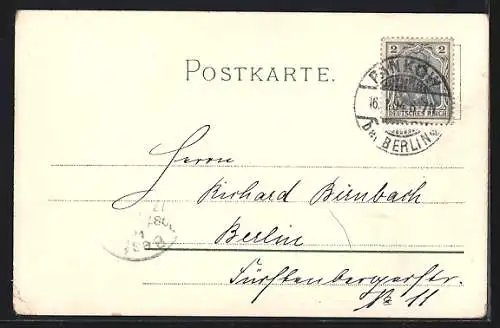 POSTKARTE.
2
PANKOW
16.
DEUTSCHES REICH
BERLIN
Herrn
Richard Birnbach
Berlin
Fürstenbergerstr.
№ 11